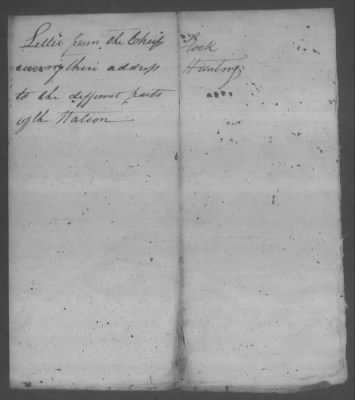 Letter from the Chiefs
conveying their address
to the different parts
of the Nation
Rock
Hunting